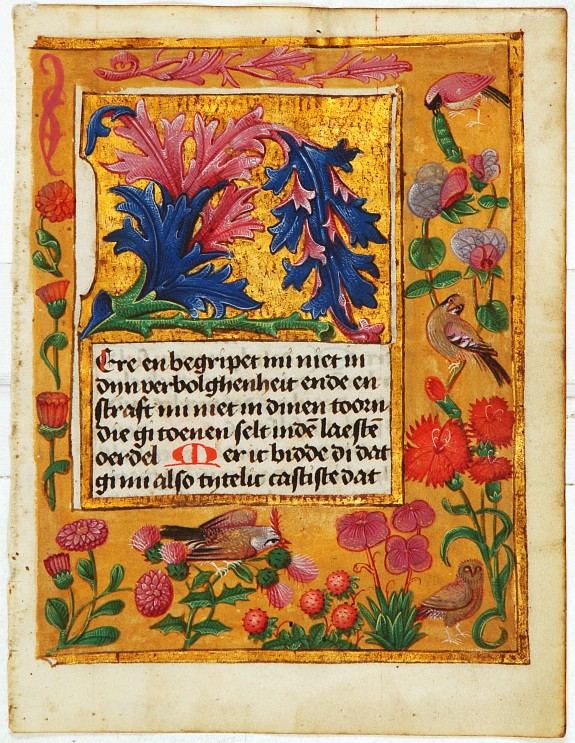 HEre en begripet mi niet in
dijn verbolghenheit ende en
straft mi niet in dinen toorn
die gi toenen selt indē laeste
oerdel Mer ic bidde di dat
gi mi also tijtelic castiste dat